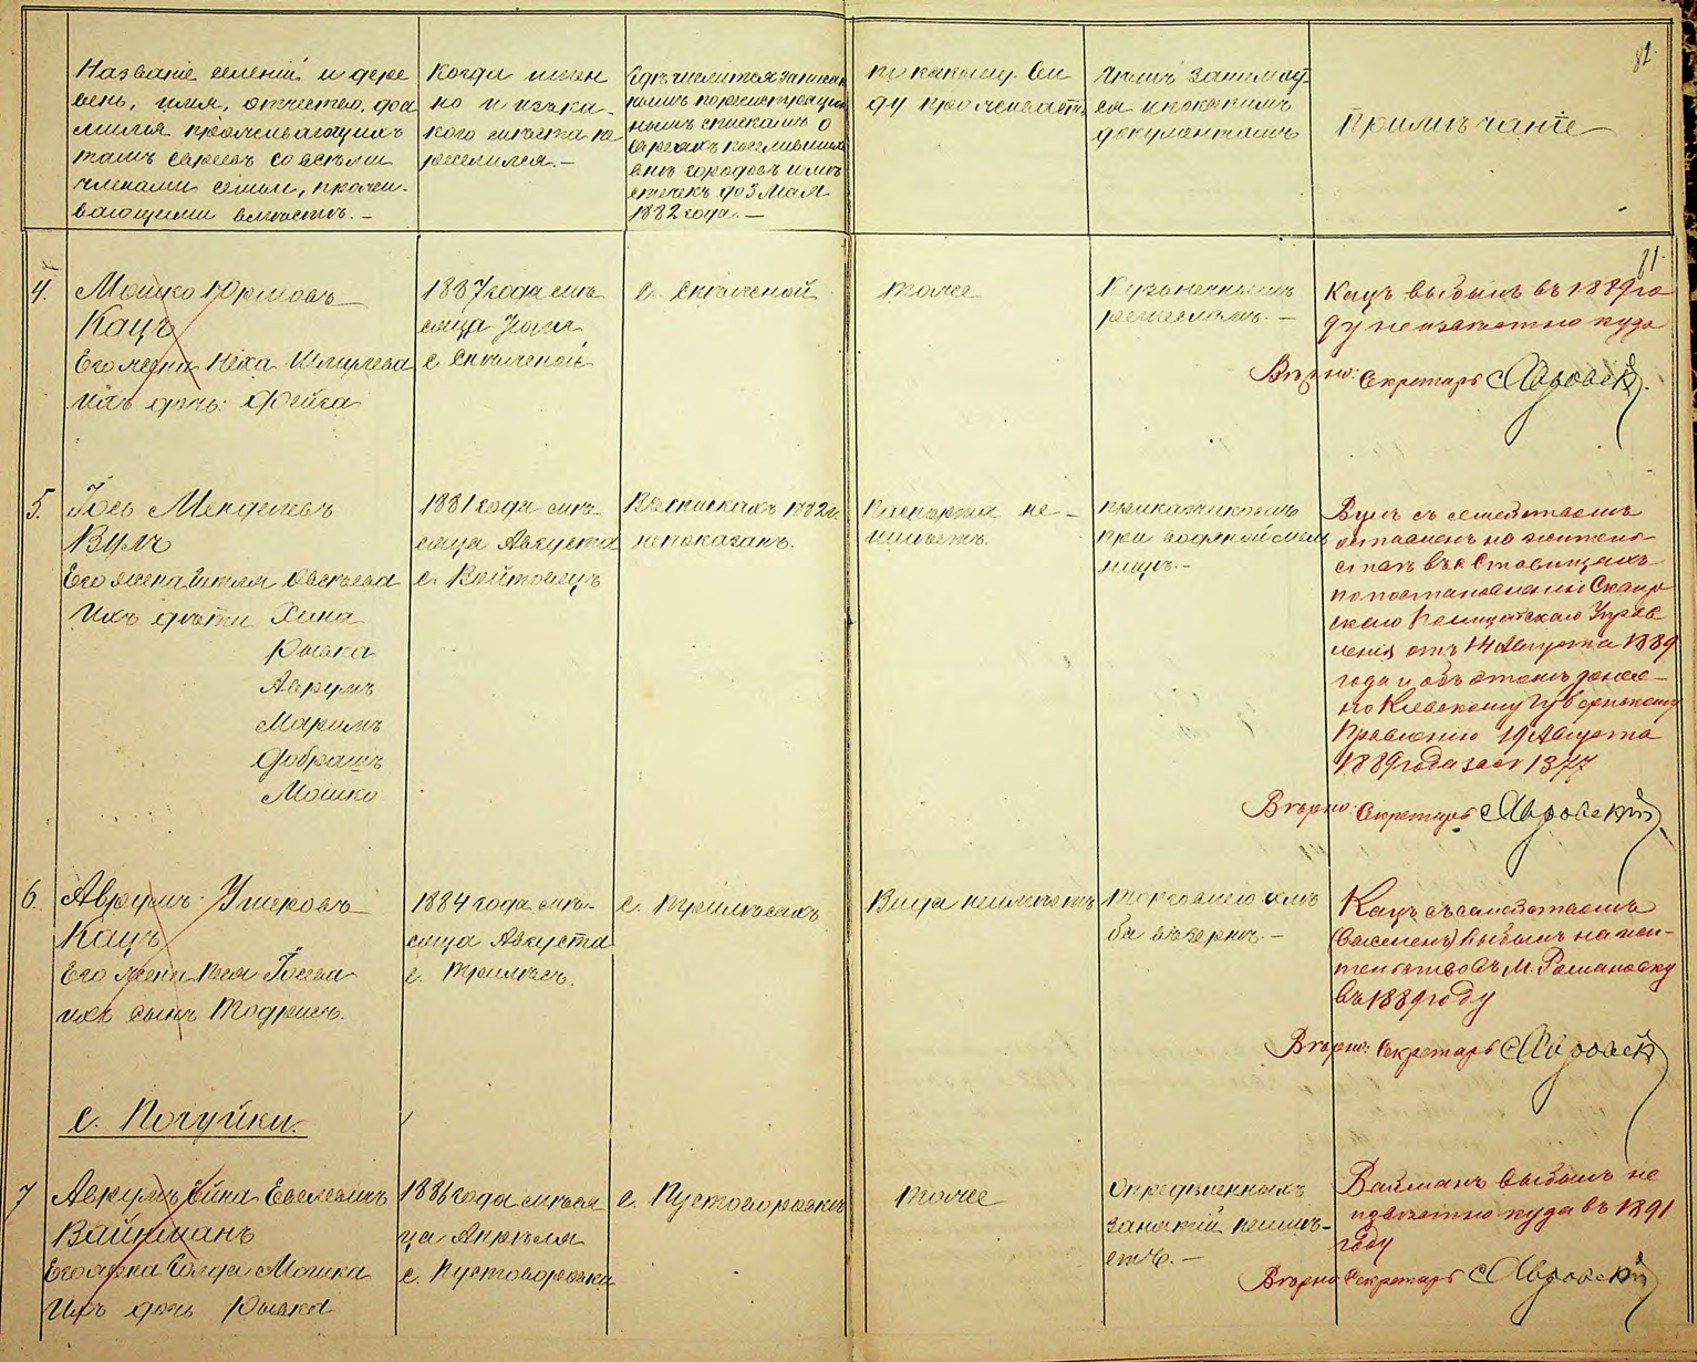 82.
Названіе селеній и дере
вень, имя, отчество, фа
милія проживающихъ
тамъ евреевъ со всѣми
членами семьи, прожи-
вающими вмѣстѣ. –
Когда имен
но и изъ ка-
кого мѣста пе
реселился. –
Гдѣ числится записан
нымъ по регистрацiон
нымъ спискамъ о
евреяхъ поселившихся
внѣ городовъ и мѣ
стечекъ до 3 Мая
1882 года. –
по какому ви
ду проживаетъ
чѣмъ занимает
ся и по какимъ
документамъ
Примѣчаніе
81.
4. Мошко Юрмовъ
Кацъ
Его жена Неха Шмулева
ихъ дочь: Фейга
1887 года мѣ
сяца Іюля
с.
с.
тоже
ремесломъ. –
Кацъ выбылъ въ 1889 го
ду неизвѣстно куда
Вѣрно: Секретарь
5. Іось Менделевъ
Вулъ
Его жена
Ихъ дѣти Хана
Рывка
Аврумъ
Маримъ
Добрашъ
Мошко
1881 года мѣ
сяца Августа
с. Войтовецъ
Въ спискахъ 1882 г.
не показанъ.
Паспорта не-
имѣетъ.
прикащикомъ
при водяной мель
ницѣ. –
Вулъ съ семействомъ
оставленъ на житель
ствѣ въ с. Ставищахъ
по постановленію Сквир
скаго Полицейскаго Управ
ленія отъ 14 Августа 1889
года и объ этомъ донесе-
но Кіевскому Губернскому
Правленію 19 Августа
1889 года за № 1377
Вѣрно: Секретарь
6. Аврумъ Ушеровъ
Кацъ
Его жена Песя Іосева
ихъ сынъ Тодрисъ.
1884 года мѣ-
сяца Августа
с. Трилѣсъ.
с. Трилѣсахъ
Вида неимѣетъ
торговлею
Кацъ съ семействомъ
выбылъ на жи-
тельство въ М. Романовку
въ 1889 году
Вѣрно: Секретарь
с. Почуйки.
7 Аврумъ Ейна
Вайнманъ
Его жена Голда Мошка
Ихъ дочь Рывка
1886 года мѣся
ца Апрѣля
с. Пустоворовка
с. Пустоворовкѣ
тоже
Опредѣленныхъ
занятій неимѣ-
етъ. –
Вайманъ выбылъ не
извѣстно куда въ 1891
году
Вѣрно Секретарь